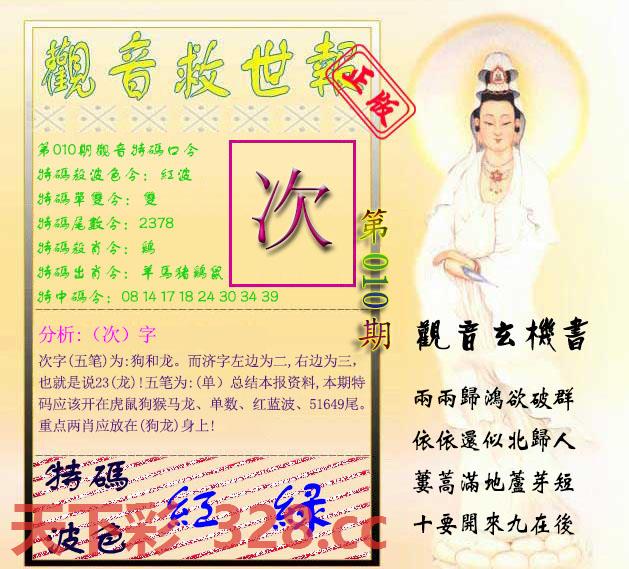 觀音救世報
正版
第010期觀音特碼口令
特碼殺波色令：紅波
特碼單雙令：雙
特碼尾數令：2378
特碼殺肖令：鷄
特碼出肖令：羊馬猪鷄鼠
特中碼令：08 14 17 18 24 30 34 39
次
第010期
分析:（次）字
次字(五笔)为:狗和龙。而济字左边为二,右边为三,
也就是说23(龙)!五笔为:(单）总结本报资料,本期特
码应该开在虎鼠狗猴马龙、单数、红蓝波、51649尾。
重点两肖应放在(狗龙)身上!
特碼
波色
紅 緑
觀音玄機書
兩兩歸鴻欲破群
依依還似北歸人
蔞蒿滿地蘆芽短
十要開來九在後
天下彩 328.cc